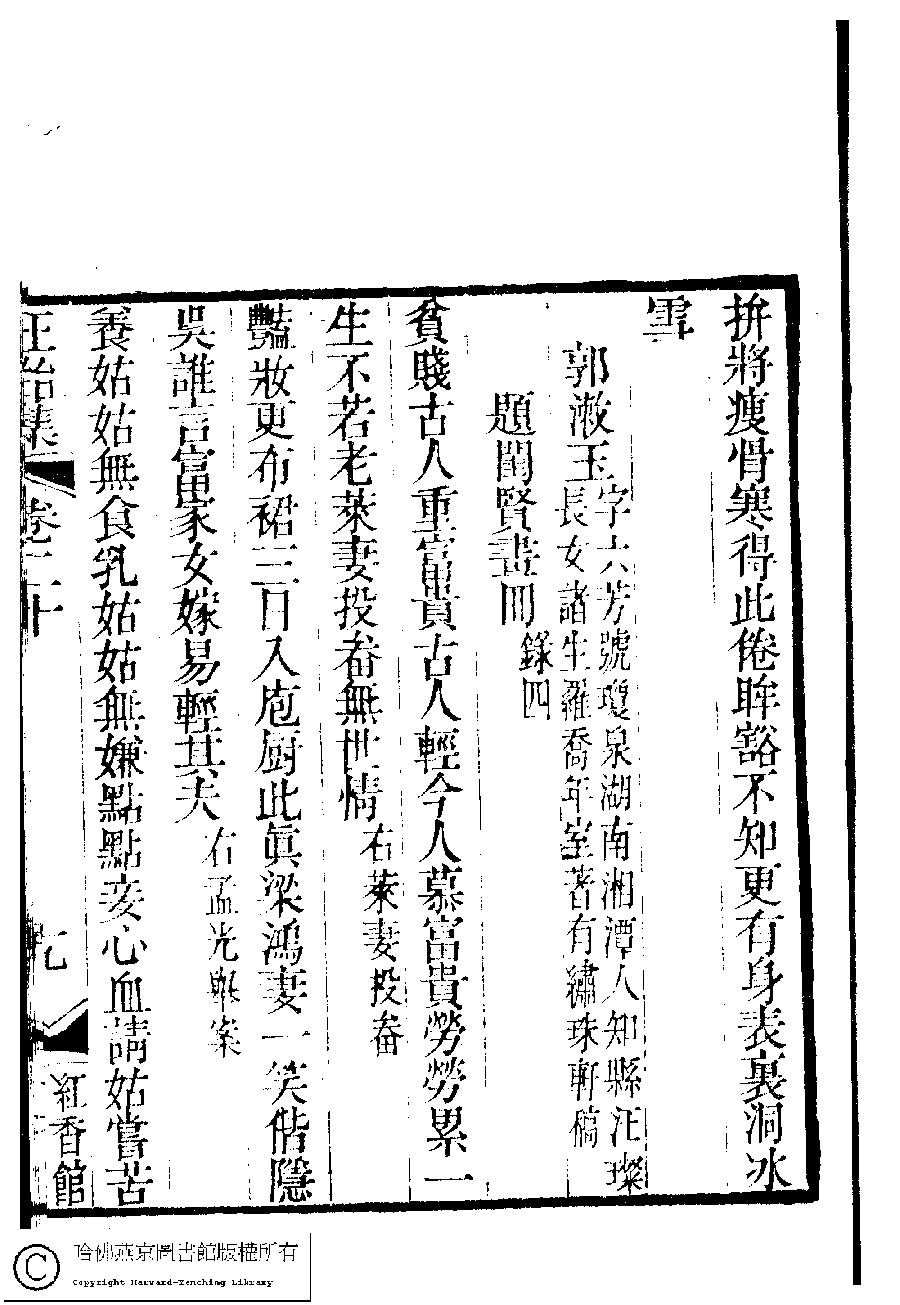 拚將瘦骨寒得此倦眸豁不知更有身表裏洞冰
雪
郭漱玉字六芳號瓊泉湖南湘潭人知縣汪璨
長女諸生羅喬年室著有繡珠軒稿
題閨賢畫冊錄四
貧賤古人重富貴古人輕今人慕富貴勞勞累一
生不若老萊妻投畚無世情右萊妻投畚
豔妝更布裙三日入庖廚此眞梁鴻妻一笑偕隱
吳誰言富家女嫁易輕其夫右孟光舉案
養姑姑無食乳姑姑無嫌點點妾心血請姑嘗苦
正始集 卷二十 紅香館
哈佛燕京圖書館版權所有
Copyright Harvard-Yenching Library